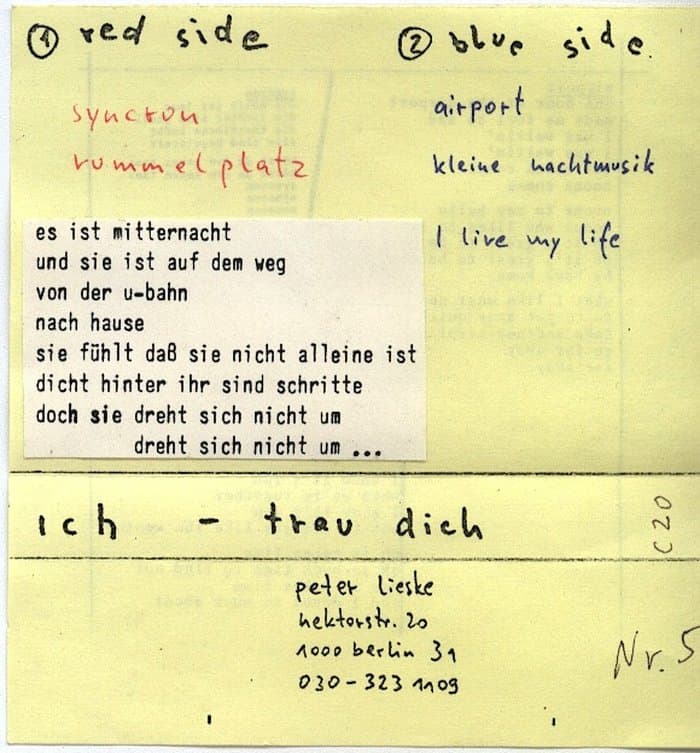 ① red side
syncron
rummelplatz
es ist mitternacht
und sie ist auf dem weg
von der u-bahn
nach hause
sie fühlt daß sie nicht alleine ist
dicht hinter ihr sind schritte
doch sie dreht sich nicht um
dreht sich nicht um ...
② blue side.
airport
kleine nachtmusik
I live my life
ich - trau dich
C20
peter lieske
hektorstr. 20
1000 berlin 31
030-323 1109
Nr. 5